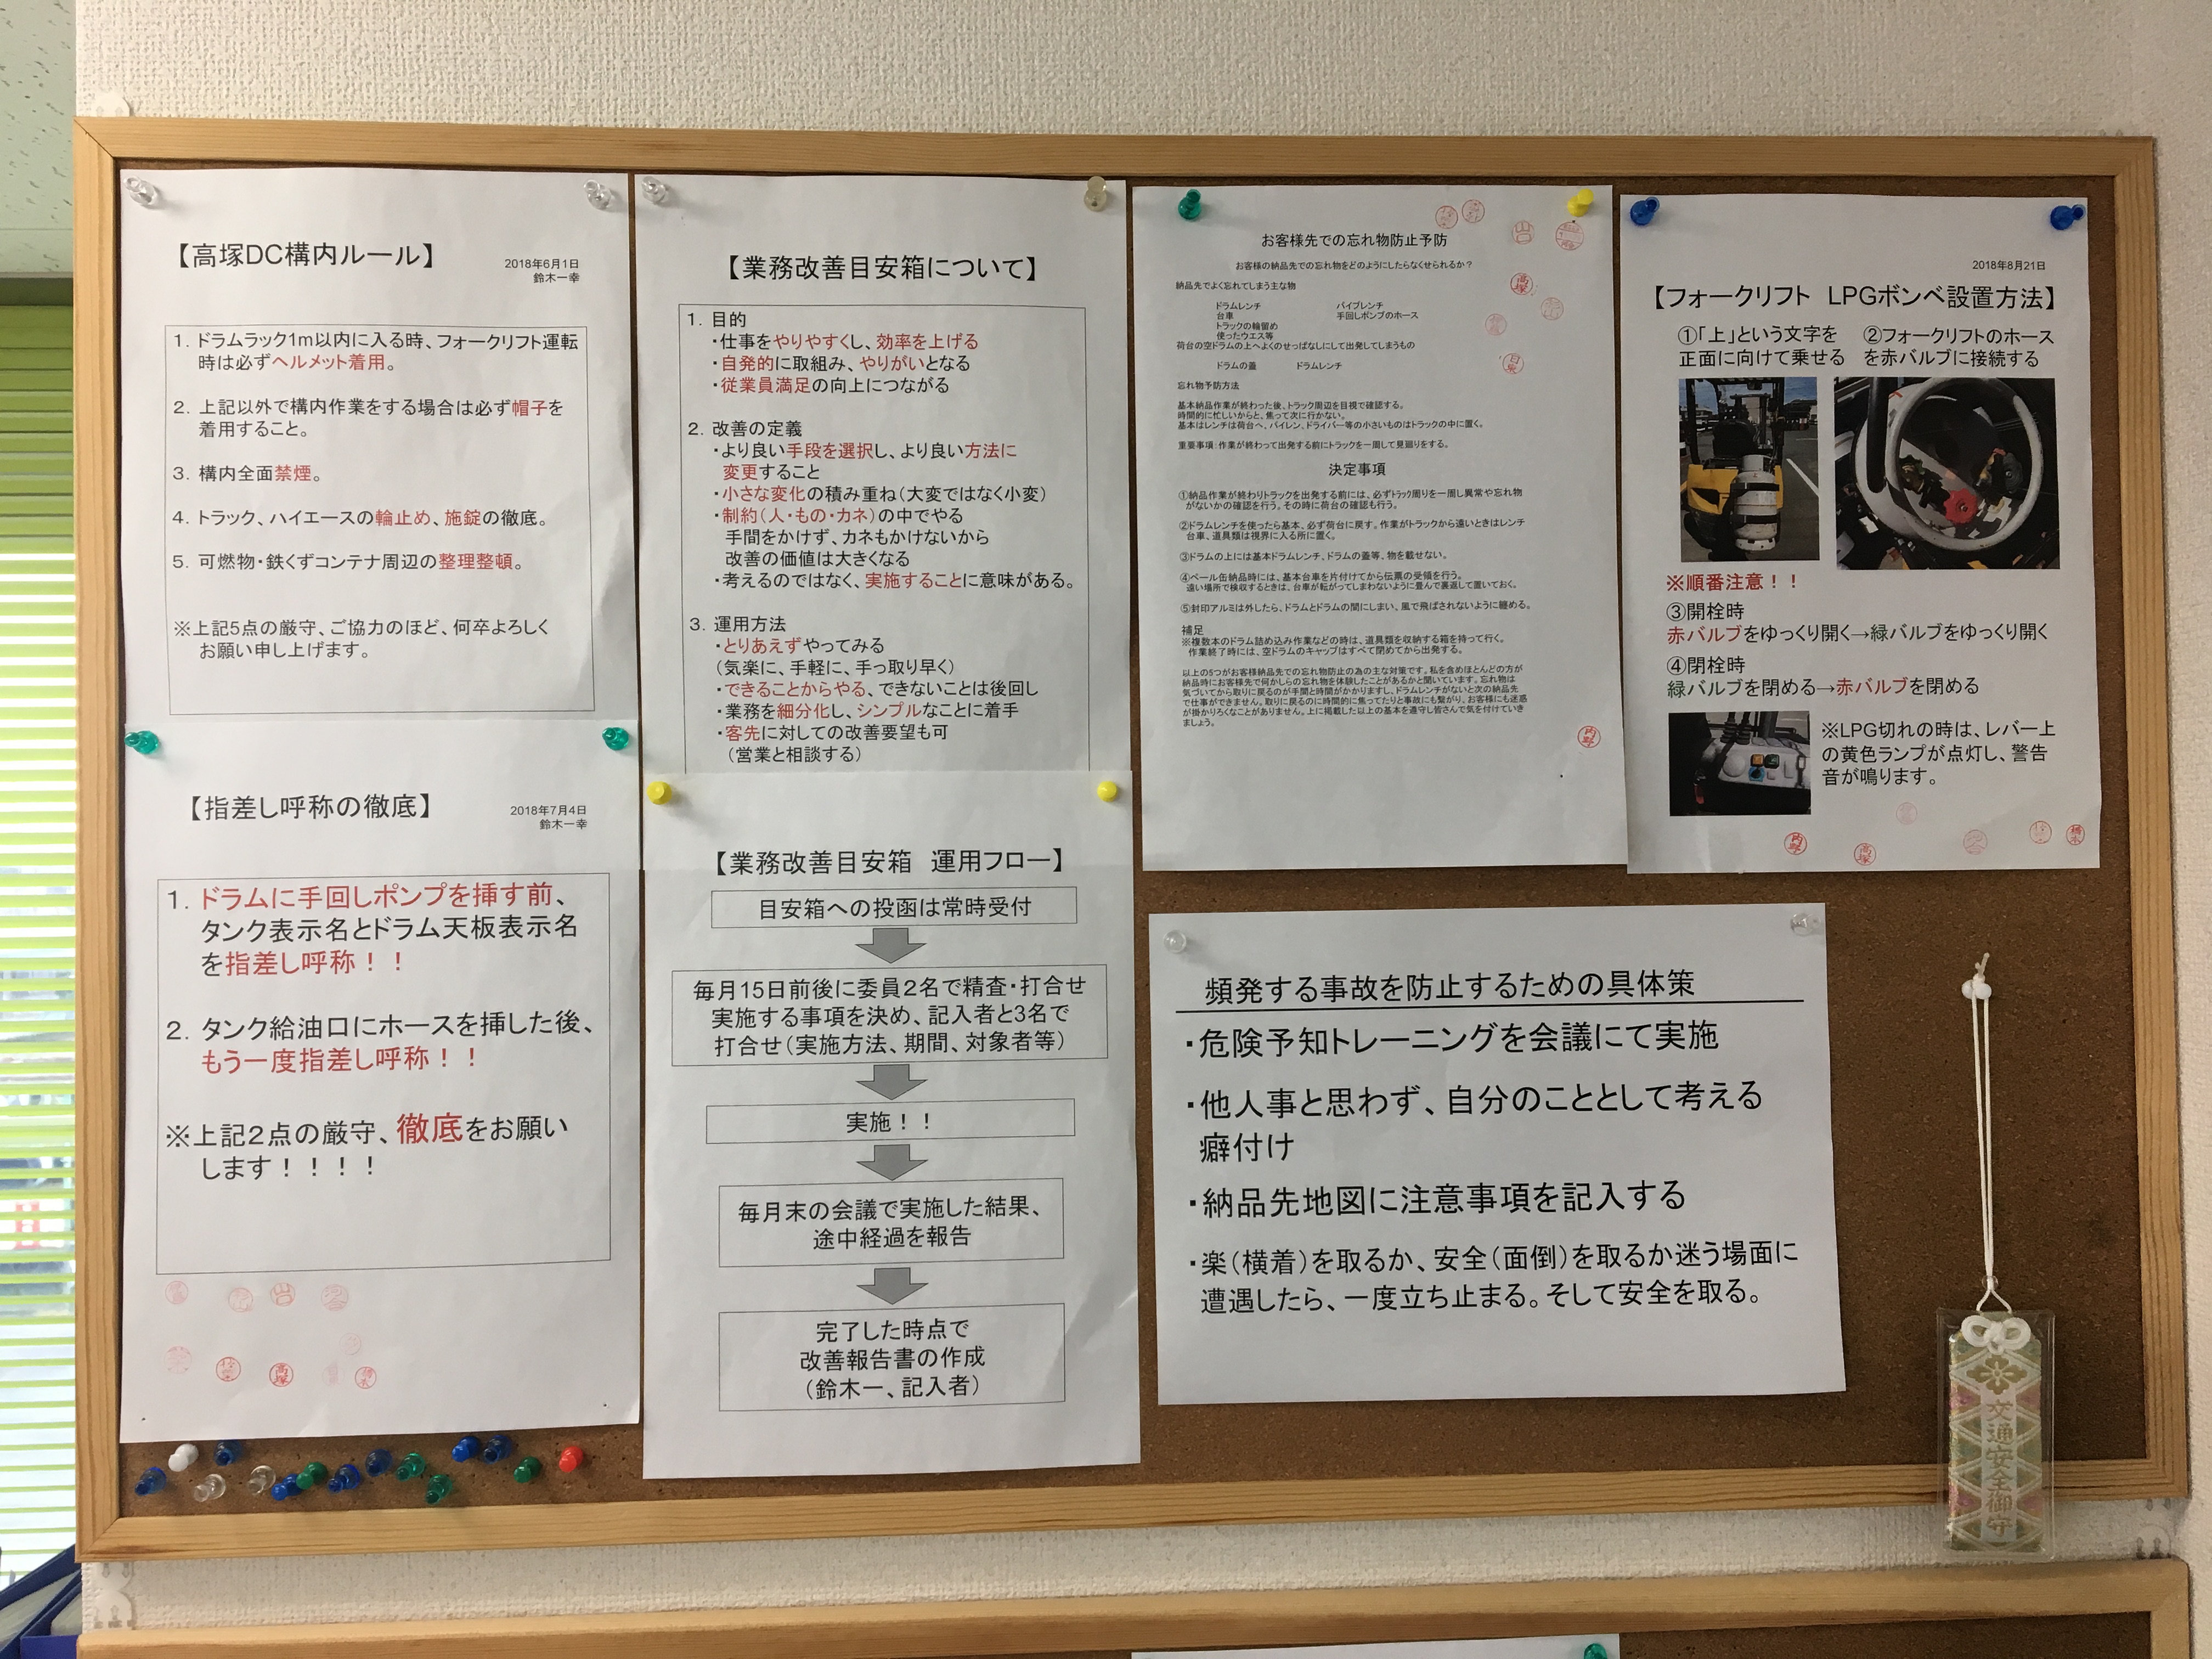 【高塚DC構内ルール】
2018年6月1日
鈴木一幸
1. ドラムラック1m以内に入る時、フォークリフト運転
時は必ずヘルメット着用。
2. 上記以外で構内作業をする場合は必ず帽子を
着用すること。
3. 構内全面禁煙。
4. トラック、ハイエースの輪止め、施錠の徹底。
5. 可燃物・鉄くずコンテナ周辺の整理整頓。
※上記5点の厳守、ご協力のほど、何卒よろしく
お願い申し上げます。
【指差し呼称の徹底】
2018年7月4日
鈴木一幸
1. ドラムに手回しポンプを挿す前、
タンク表示名とドラム天板表示名
を指差し呼称！！
2. タンク給油口にホースを挿した後、
もう一度指差し呼称！！
※上記2点の厳守、徹底をお願い
します！！！！
山
高塚
【業務改善目安箱について】
1. 目的
・仕事をやりやすくし、効率を上げる
・自発的に取組み、やりがいとなる
・従業員満足の向上につながる
2. 改善の定義
・より良い手段を選択し、より良い方法に
変更すること
・小さな変化の積み重ね（大変ではなく小変）
・制約（人・もの・カネ）の中でやる
手間をかけず、カネもかけないから
改善の価値は大きくなる
・考えるのではなく、実施することに意味がある。
3. 運用方法
・とりあえずやってみる
（気楽に、手軽に、手っ取り早く）
・できることからやる、できないことは後回し
・業務を細分化し、シンプルなことに着手
・客先に対しての改善要望も可
（営業と相談する）
【業務改善目安箱　運用フロー】
目安箱への投函は常時受付
毎月15日前後に委員2名で精査・打合せ
実施する事項を決め、記入者と3名で
打合せ（実施方法、期間、対象者等）
実施！！
毎月末の会議で実施した結果、
途中経過を報告
完了した時点で
改善報告書の作成
（鈴木一、記入者）
お客様先での忘れ物防止予防
お客様の納品先での忘れ物をどのようにしたらなくせられるか？
納品先でよく忘れてしまう主な物
ドラムレンチ　パイプレンチ
台車　手回しポンプのホース
トラックの輪留め
使ったウエス等
荷台の空ドラムの上へよくのせっぱなしにして出発してしまうもの
ドラムの蓋　ドラムレンチ
忘れ物予防方法
基本納品作業が終わった後、トラック周辺を目視で確認する。
時間的に忙しいからと、焦って次に行かない。
基本はレンチは荷台へ、パイレン、ドライバー等の小さいものはトラックの中に置く。
重要事項：作業が終わって出発する前にトラックを一周して見廻りをする。
決定事項
①納品作業が終わりトラックを出発する前には、必ずトラック周りを一周し異常や忘れ物
がないかの確認を行う。その時に荷台の確認も行う。
②ドラムレンチを使ったら基本、必ず荷台に戻す。作業がトラックから遠いときはレンチ
台車、道具類は視界に入る所に置く。
③ドラムの上には基本ドラムレンチ、ドラムの蓋等、物を載せない。
④ペール缶納品時には、基本台車を片付けてから伝票の受領を行う。
遠い場所で検収するときは、台車が転がってしまわないように畳んで裏返して置いておく。
⑤封印アルミは外したら、ドラムとドラムの間にしまい、風で飛ばされないように纏める。
補足
※複数本のドラム詰め込み作業などの時は、道具類を収納する箱を持って行く。
作業終了時には、空ドラムのキャップはすべて閉めてから出発する。
以上の5つがお客様納品先での忘れ物防止の為の主な対策です。私を含めほとんどの方が
納品時にお客様先で何かしらの忘れ物を体験したことがあるかと聞いています。忘れ物は
気づいてから取りに戻るのが手間と時間がかかりますし、ドラムレンチがないと次の納品先
で仕事ができません。取りに戻るのに時間的に焦ってたりと事故にも繋がり、お客様にも迷惑
が掛かりろくなことがありません。上に掲載した以上の基本を遵守し皆さんで気を付けていき
ましょう。
山
高塚
内野
2018年8月21日
【フォークリフト　LPGボンベ設置方法】
①「上」という文字を
正面に向けて乗せる
②フォークリフトのホース
を赤バルブに接続する
※順番注意！！
③開栓時
赤バルブをゆっくり開く→緑バルブをゆっくり開く
④閉栓時
緑バルブを閉める→赤バルブを閉める
※LPG切れの時は、レバー上
の黄色ランプが点灯し、警告
音が鳴ります。
内野
高塚
頻発する事故を防止するための具体策
・危険予知トレーニングを会議にて実施
・他人事と思わず、自分のこととして考える
癖付け
・納品先地図に注意事項を記入する
・楽（横着）を取るか、安全（面倒）を取るか迷う場面に
遭遇したら、一度立ち止まる。そして安全を取る。
交通安全御守